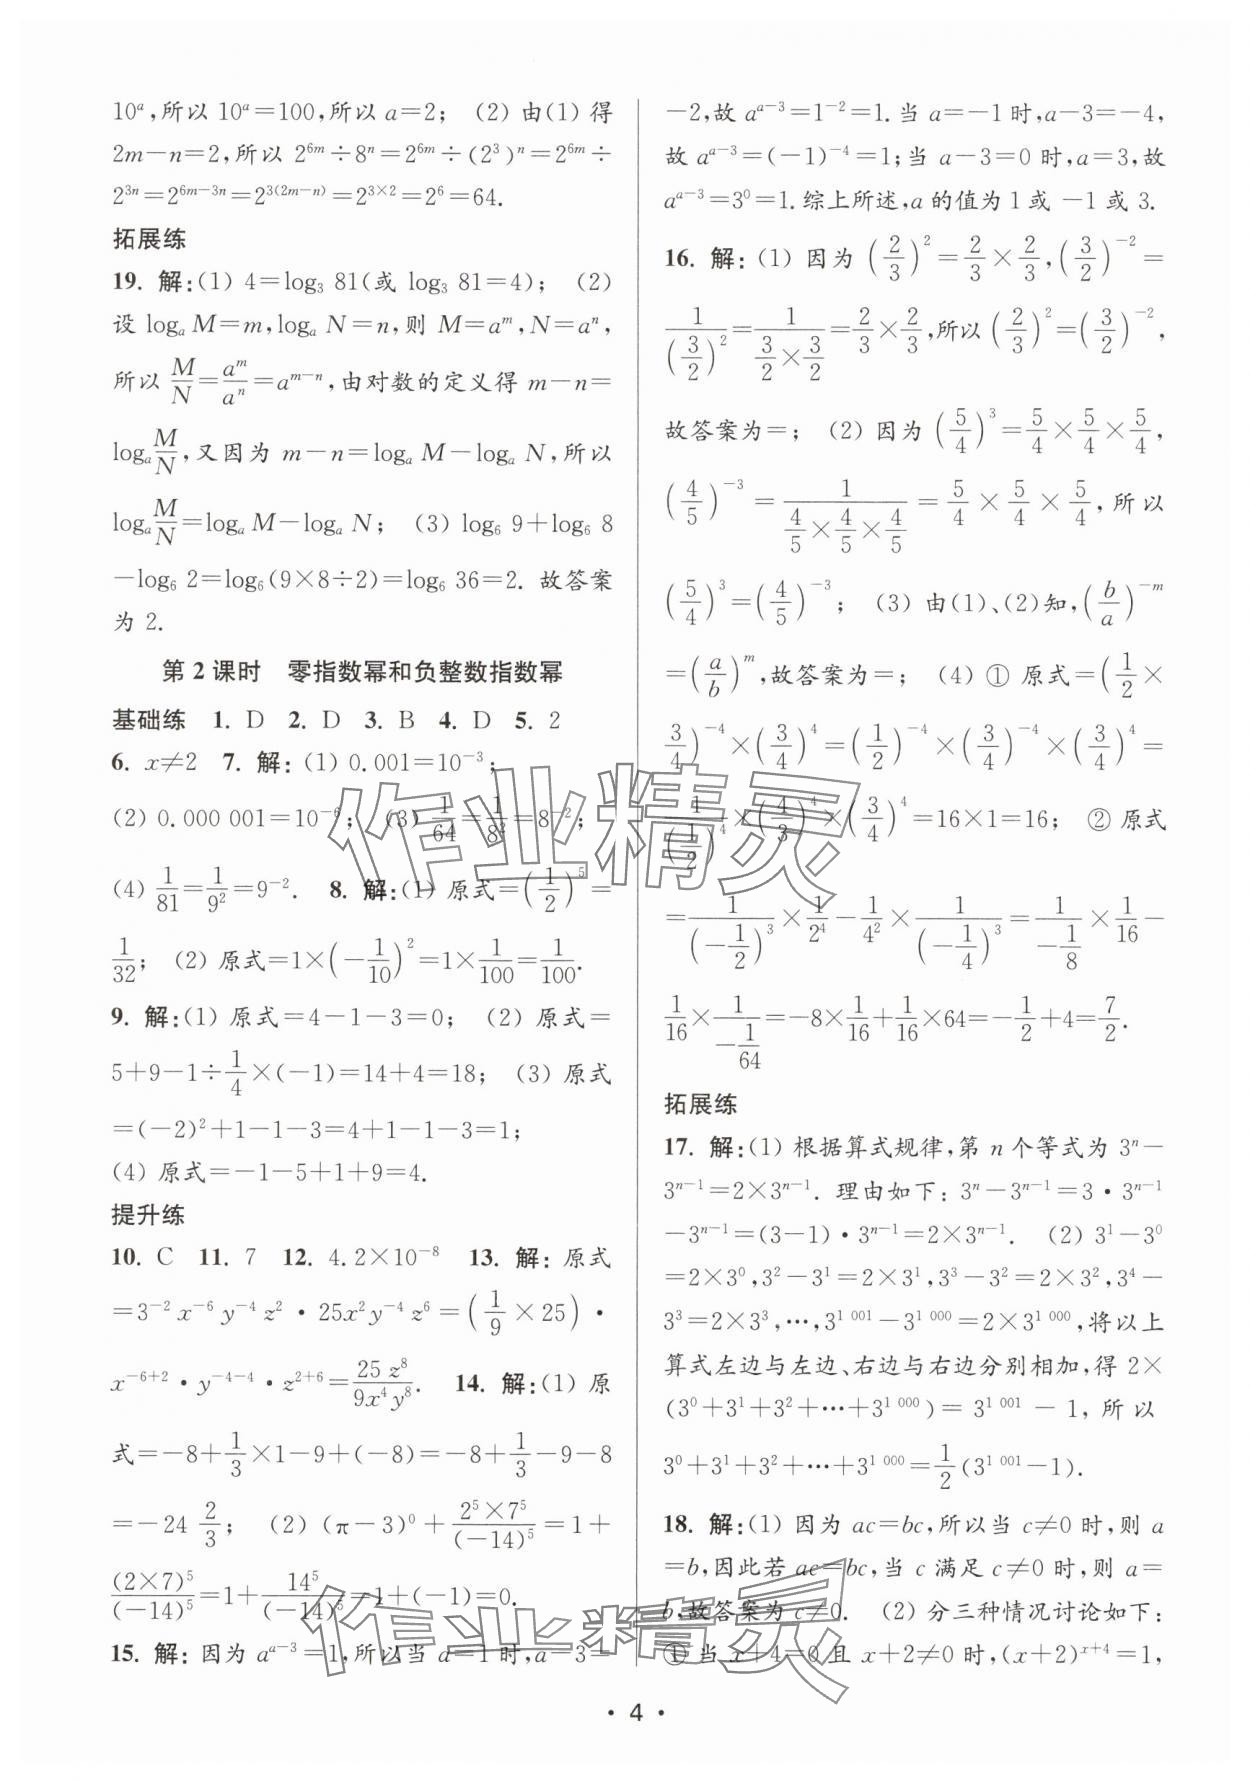 10^a,所以 10^a=100,所以 a=2; (2) 由(1) 得
2m-n=2,所以 2^{6m}÷8^n=2^{6m}÷(2^3)^n=2^{6m}÷
2^{3n}=2^{6m-3n}=2^{3(2m-n)}=2^{3×2}=2^6=64.
拓展练
19. 解:(1) 4=log_3 81(或 log_3 81=4); (2)
设 log_a M=m,log_a N=n,则 M=a^m,N=a^n,
所以 M/N=a^m/a^n=a^{m-n},由对数的定义得 m-n=
log_a M/N,又因为 m-n=log_a M-log_a N,所以
log_a M/N=log_a M-log_a N; (3) log_6 9+log_6 8
-log_6 2=log_6(9×8÷2)=log_6 36=2. 故答案
为 2.
第 2 课时 零指数幂和负整数指数幂
基础练 1. D 2. D 3. B 4. D 5. 2
6. x≠2 7. 解:(1) 0.001=10^{-3};
(2) 0.000 001=10^{-6}; (3) 1/64=1/8^2=8^{-2};
(4) 1/81=1/9^2=9^{-2}. 8. 解:(1) 原式=(1/2)^5=
1/32; (2) 原式=1×(-1/10)^2=1×1/100=1/100.
9. 解:(1) 原式=4-1-3=0; (2) 原式=
5+9-1÷1/4×(-1)=14+4=18; (3) 原式
=(-2)^2+1-1-3=4+1-1-3=1;
(4) 原式=-1-5+1+9=4.
提升练
10. C 11. 7 12. 4.2×10^{-8} 13. 解: 原式
=3^{-2} x^{-6} y^{-4} z^2 · 25x^2 y^{-4} z^6=(1/9×25)·
x^{-6+2}·y^{-4-4}·z^{2+6}=25 z^8/9x^4 y^8. 14. 解:(1) 原
式=-8+1/3×1-9+(-8)=-8+1/3-9-8
=-24 2/3; (2) (π-3)^0+2^5×7^5/(-14)^5=1+
(2×7)^5/(-14)^5=1+14^5/(-14)^5=1+(-1)=0.
15. 解: 因为 a^{a-3}=1,所以当 a=1 时,a-3=
-2,故 a^{a-3}=1^{-2}=1.当 a=-1 时,a-3=-4,
故 a^{a-3}=(-1)^{-4}=1;当 a-3=0 时,a=3,故
a^{a-3}=3^0=1.综上所述,a 的值为 1 或 -1 或 3.
16. 解:(1) 因为 (2/3)^2=2/3×2/3,(3/2)^{-2}=
1/(3/2)^2=1/(3/2×3/2)=2/3×2/3,所以 (2/3)^2=(3/2)^{-2},
故答案为=; (2) 因为 (5/4)^3=5/4×5/4×5/4,
(4/5)^{-3}=1/(4/5×4/5×4/5)=5/4×5/4×5/4,所以
(5/4)^3=(4/5)^{-3}; (3) 由(1)、(2)知,(b/a)^{-m}
=(a/b)^m,故答案为=; (4) ① 原式=(1/2×
3/4)^{-4}×(3/4)^4=(1/2)^{-4}×(3/4)^{-4}×(3/4)^4=
1/(1/2)^4×(4/3)^4×(3/4)^4=16×1=16; ② 原式
=1/(-1/2)^3×1/2^4-1/4^2×1/(-1/4)^3=1/(-1/8)×1/16-
1/16×1/(-1/64)=-8×1/16+1/16×64=-1/2+4=7/2.
拓展练
17. 解:(1) 根据算式规律,第 n 个等式为 3^n-
3^{n-1}=2×3^{n-1}. 理由如下: 3^n-3^{n-1}=3·3^{n-1}
-3^{n-1}=(3-1)·3^{n-1}=2×3^{n-1}. (2) 3^1-3^0
=2×3^0,3^2-3^1=2×3^1,3^3-3^2=2×3^2,3^4-
3^3=2×3^3,…,3^{1 001}-3^{1 000}=2×3^{1 000},将以上
算式左边与左边、右边与右边分别相加,得 2×
(3^0+3^1+3^2+…+3^{1 000})=3^{1 001}-1,所以
3^0+3^1+3^2+…+3^{1 000}=1/2(3^{1 001}-1).
18. 解:(1) 因为 ac=bc,所以当 c≠0 时,则 a
=b,因此若 ac=bc,当 c 满足 c≠0 时,则 a=
b,故答案为 c≠0. (2) 分三种情况讨论如下:
① 当 x+4=0 且 x+2≠0 时,(x+2)^{x+4}=1,
· 4 ·
作业精灵
作业精灵